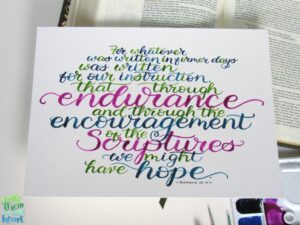 For whatever
was written in former days
was written
for our instruction
that through
endurance
and through the
encouragement
of the
Scriptures
we might
have hope